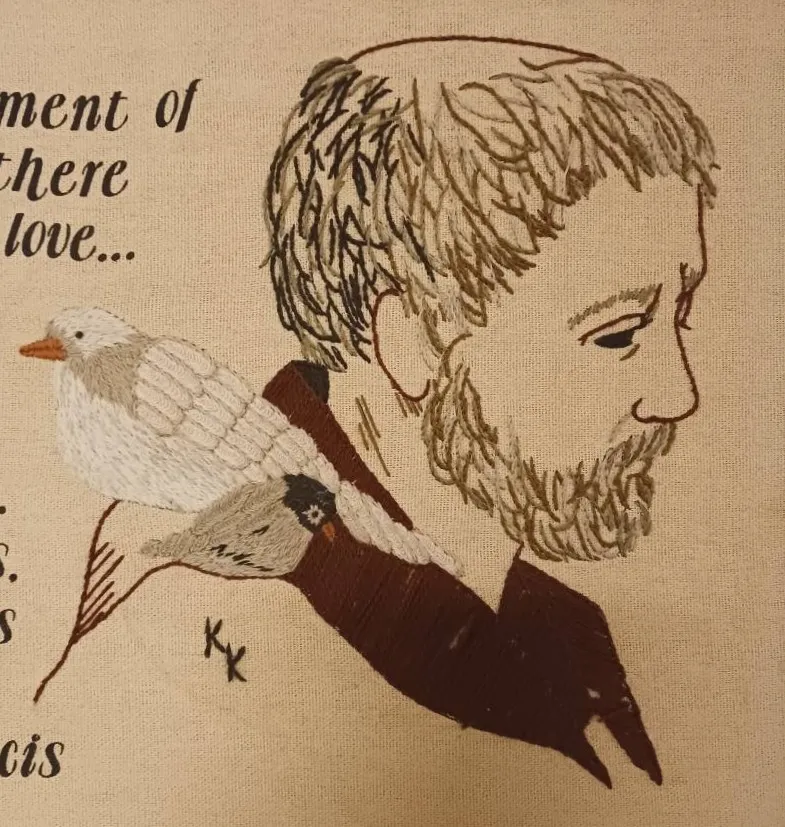 ment of
there
love...
.
s.
s
K
K
cis